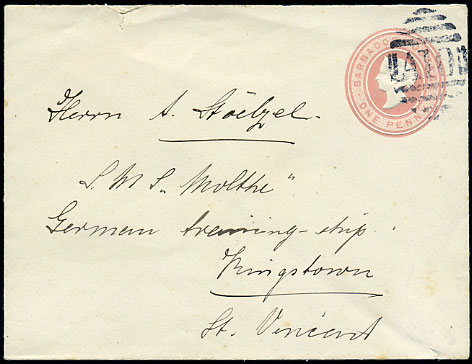 BARBADOS
ONE PENNY
A10
Herrn A. Stoëtzel.
S.M.S. „Molthe"
German training-ship.
Kingstown
St. Vincent